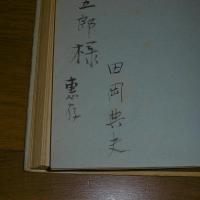 五郎様
恵存
田岡典夫